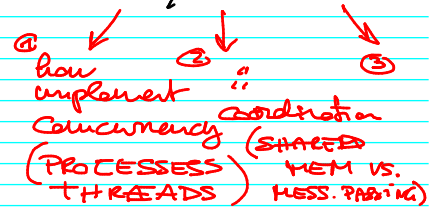 ①
how
implement
concurrency
(PROCESSESS
THREADS)
②
"
coordination
(SHARED
MEM VS.
MESS. PASSING)
③